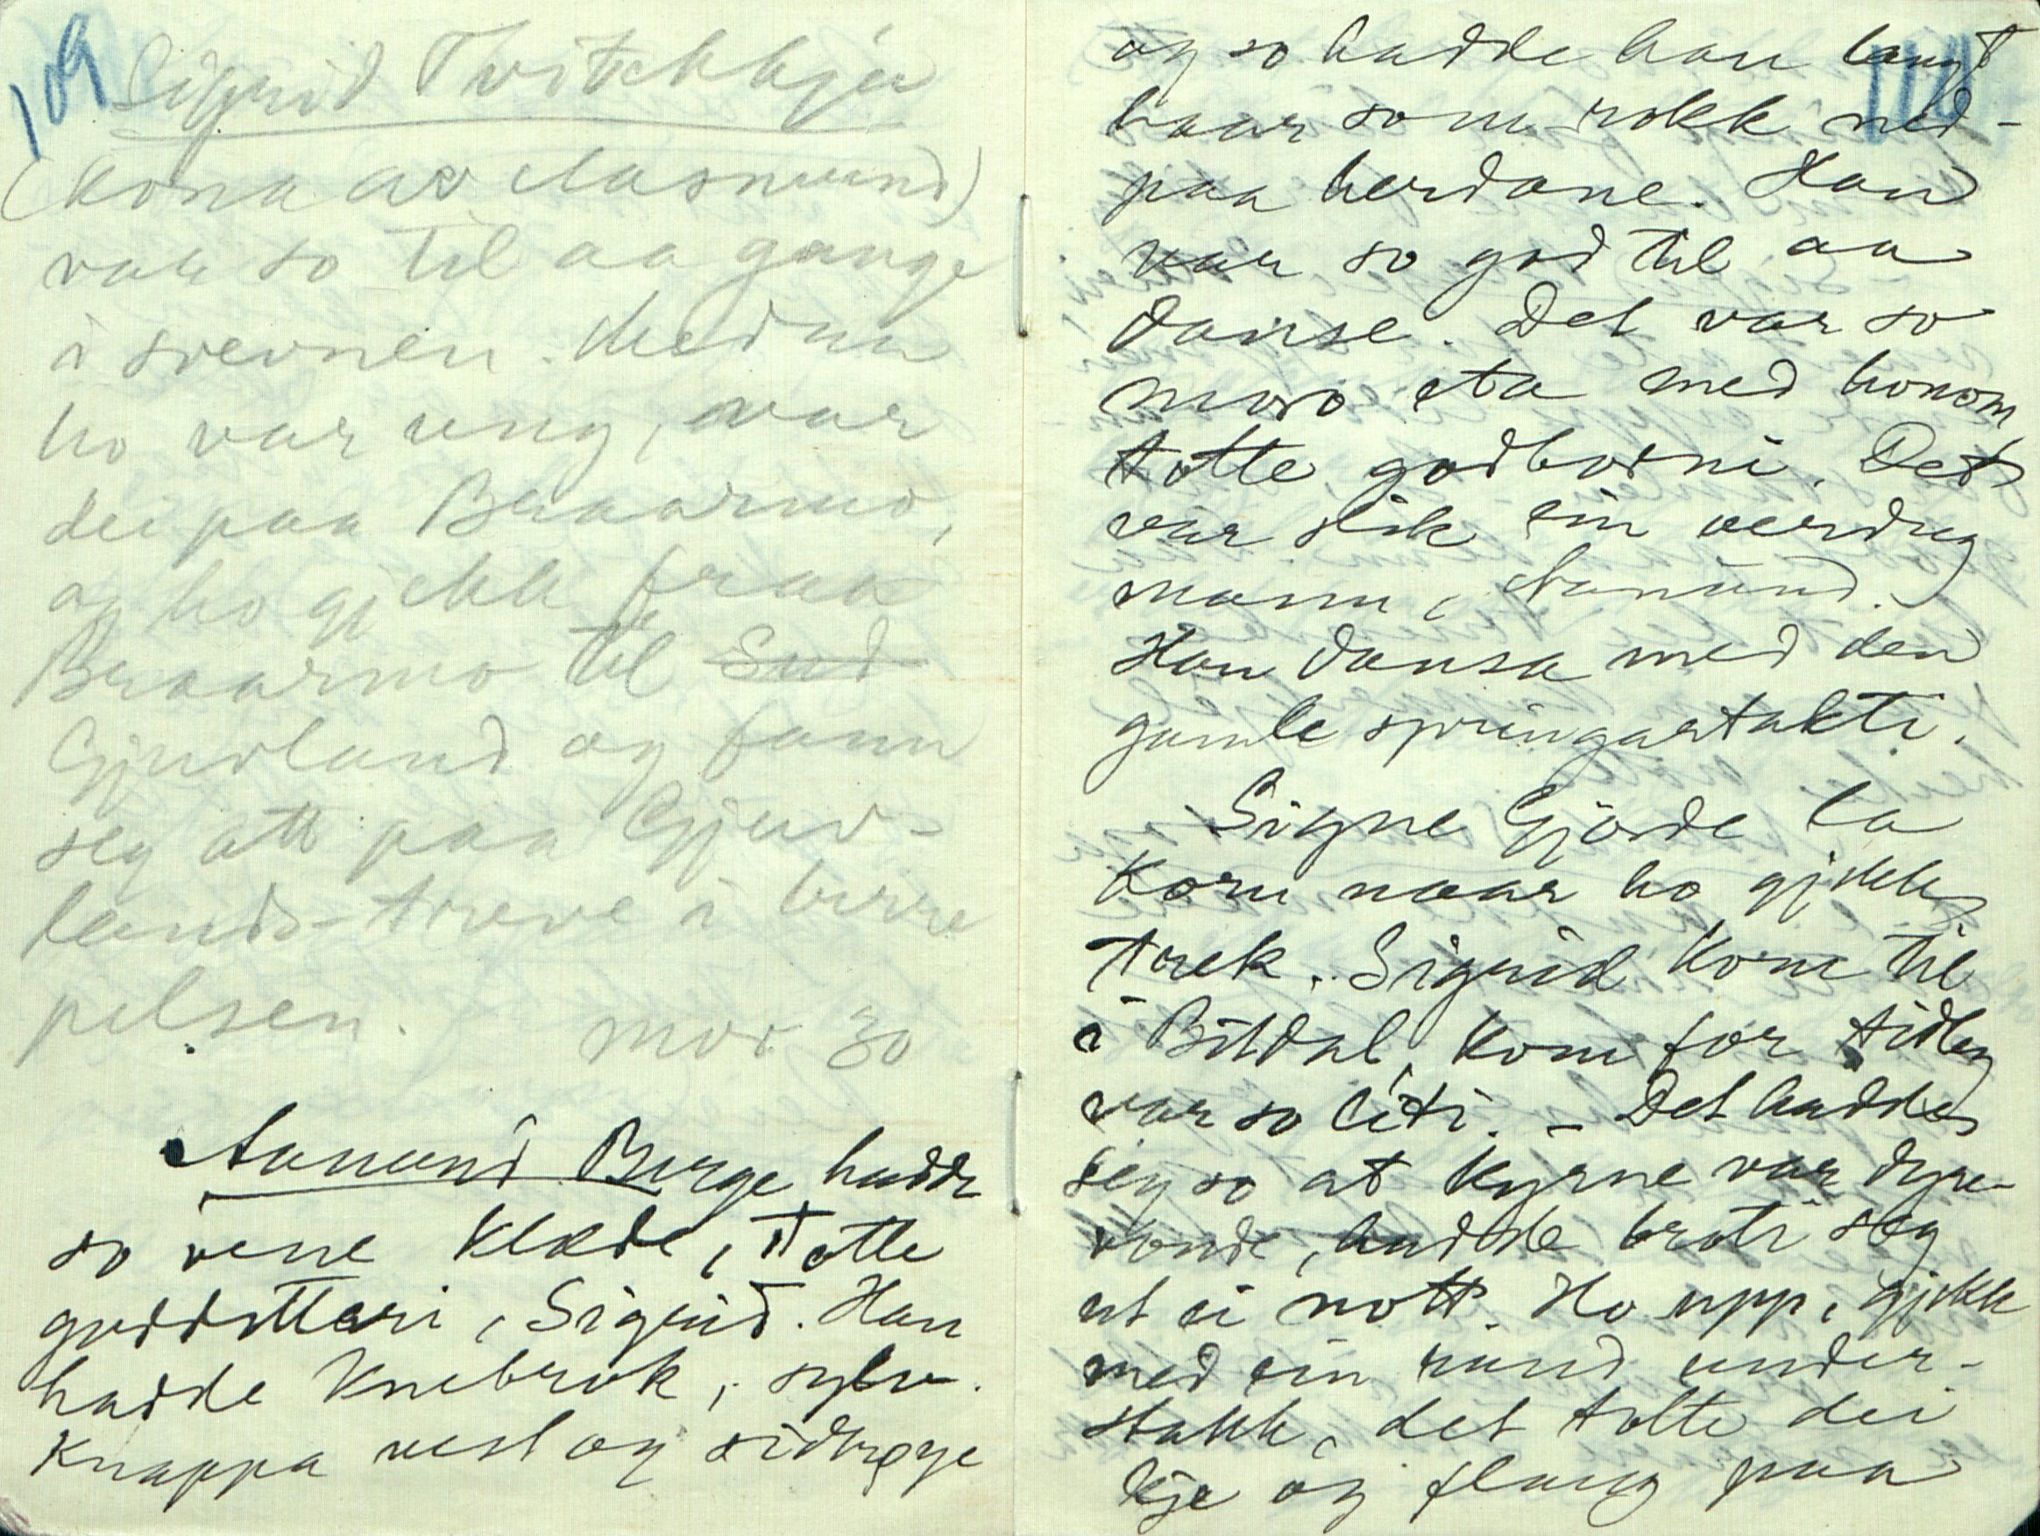 109
Sigrid Tvitekkjn
(kona av Aasmund)
var so til aa gange
i svevnen. Medan
ho var ung, var
dei paa Braarmo,
og ho gjekk fraa
Braarmo til Sud
Gjuvland og fann
seg att paa Gjuv-
lands-treve i berre
pelsen.
mor 30
Aanund Berge hadde
so vene klæde, totte
goddotteri, Sigrid. Han
hadde knebrok, sylv-
knappa vest og sidtrøye
110
og so hadde han langt
haar som rokk ned-
paa herdane. Han
var so god til aa
danse. Det var so
moro eta med honom
totte godborni. Det
var slik ein verdug
mann, Aanund.
Han dansa med den
gamle springartakti.
Signe Gjørde la
korn naar ho gjekk
trek. Sigrid kom til
i Bitdal, kom for tidleg
var so liti. – Det hadde
seg so at kyrne var dyre-
vonde, hadde broti seg
ut ei nott. Ho upp, gjekk
med ein rand under-
stakk, det tolte dei
kje og flaug paa